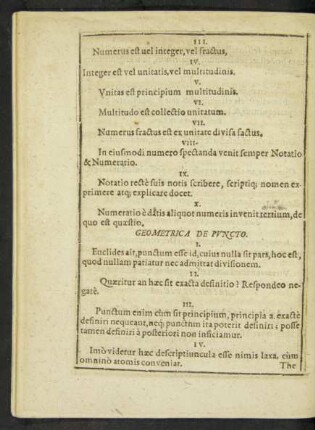 III.
Numerus est uel integer, vel fractus,
IV.
Integer est vel unitatis, vel multitudinis.
V.
Vnitas est principium multitudinis.
VI.
Multitudo est collectio unitatum.
VII.
Numerus fractus est ex unitate divisa factus,
VIII.
In eiusmodi numero spectanda venit semper Notatio
& Numeratio.
IX.
Notatio rectè suis notis scribere, scriptiq; nomen ex-
primere atq; explicare docet.
X.
Numeratio è datis aliquot numeris invenit tertium, de
quo est quæstio,
GEOMETRICA DE PVNCTO.
I.
Euclides ait, punctum esse id, cuius nulla sit pars, hoc est,
quod nullam patiatur nec admittat divisionem.
II.
Quæritur an hæc sit exacta definitio? Respondeo ne-
gatè.
III.
Punctum enim cùm sit principium, principia v. exactè
definiri nequeant, neq; punctum ita poterit definiri: posse
tamen definiri à posteriori non inficiamur.
IV.
Imò videtur hæc descriptiuncula esse nimis laxa, cùm
omninò atomis conveniat.
The